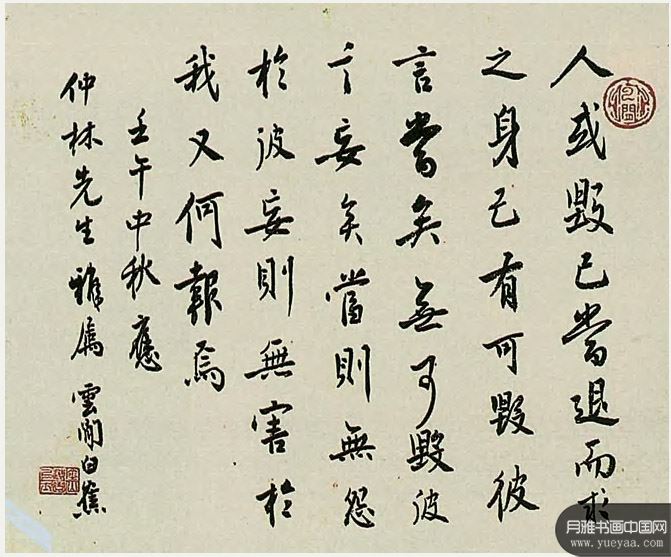 人或毁己當退而求
之身己有可毁彼
言當矣無可毁彼
言妄矣當則無怨
於彼妄則無害於
我又何報焉
壬午中秋應
仲林先生雅屬雲間白蕉
月雅书画中国网
www.yueyaa.com